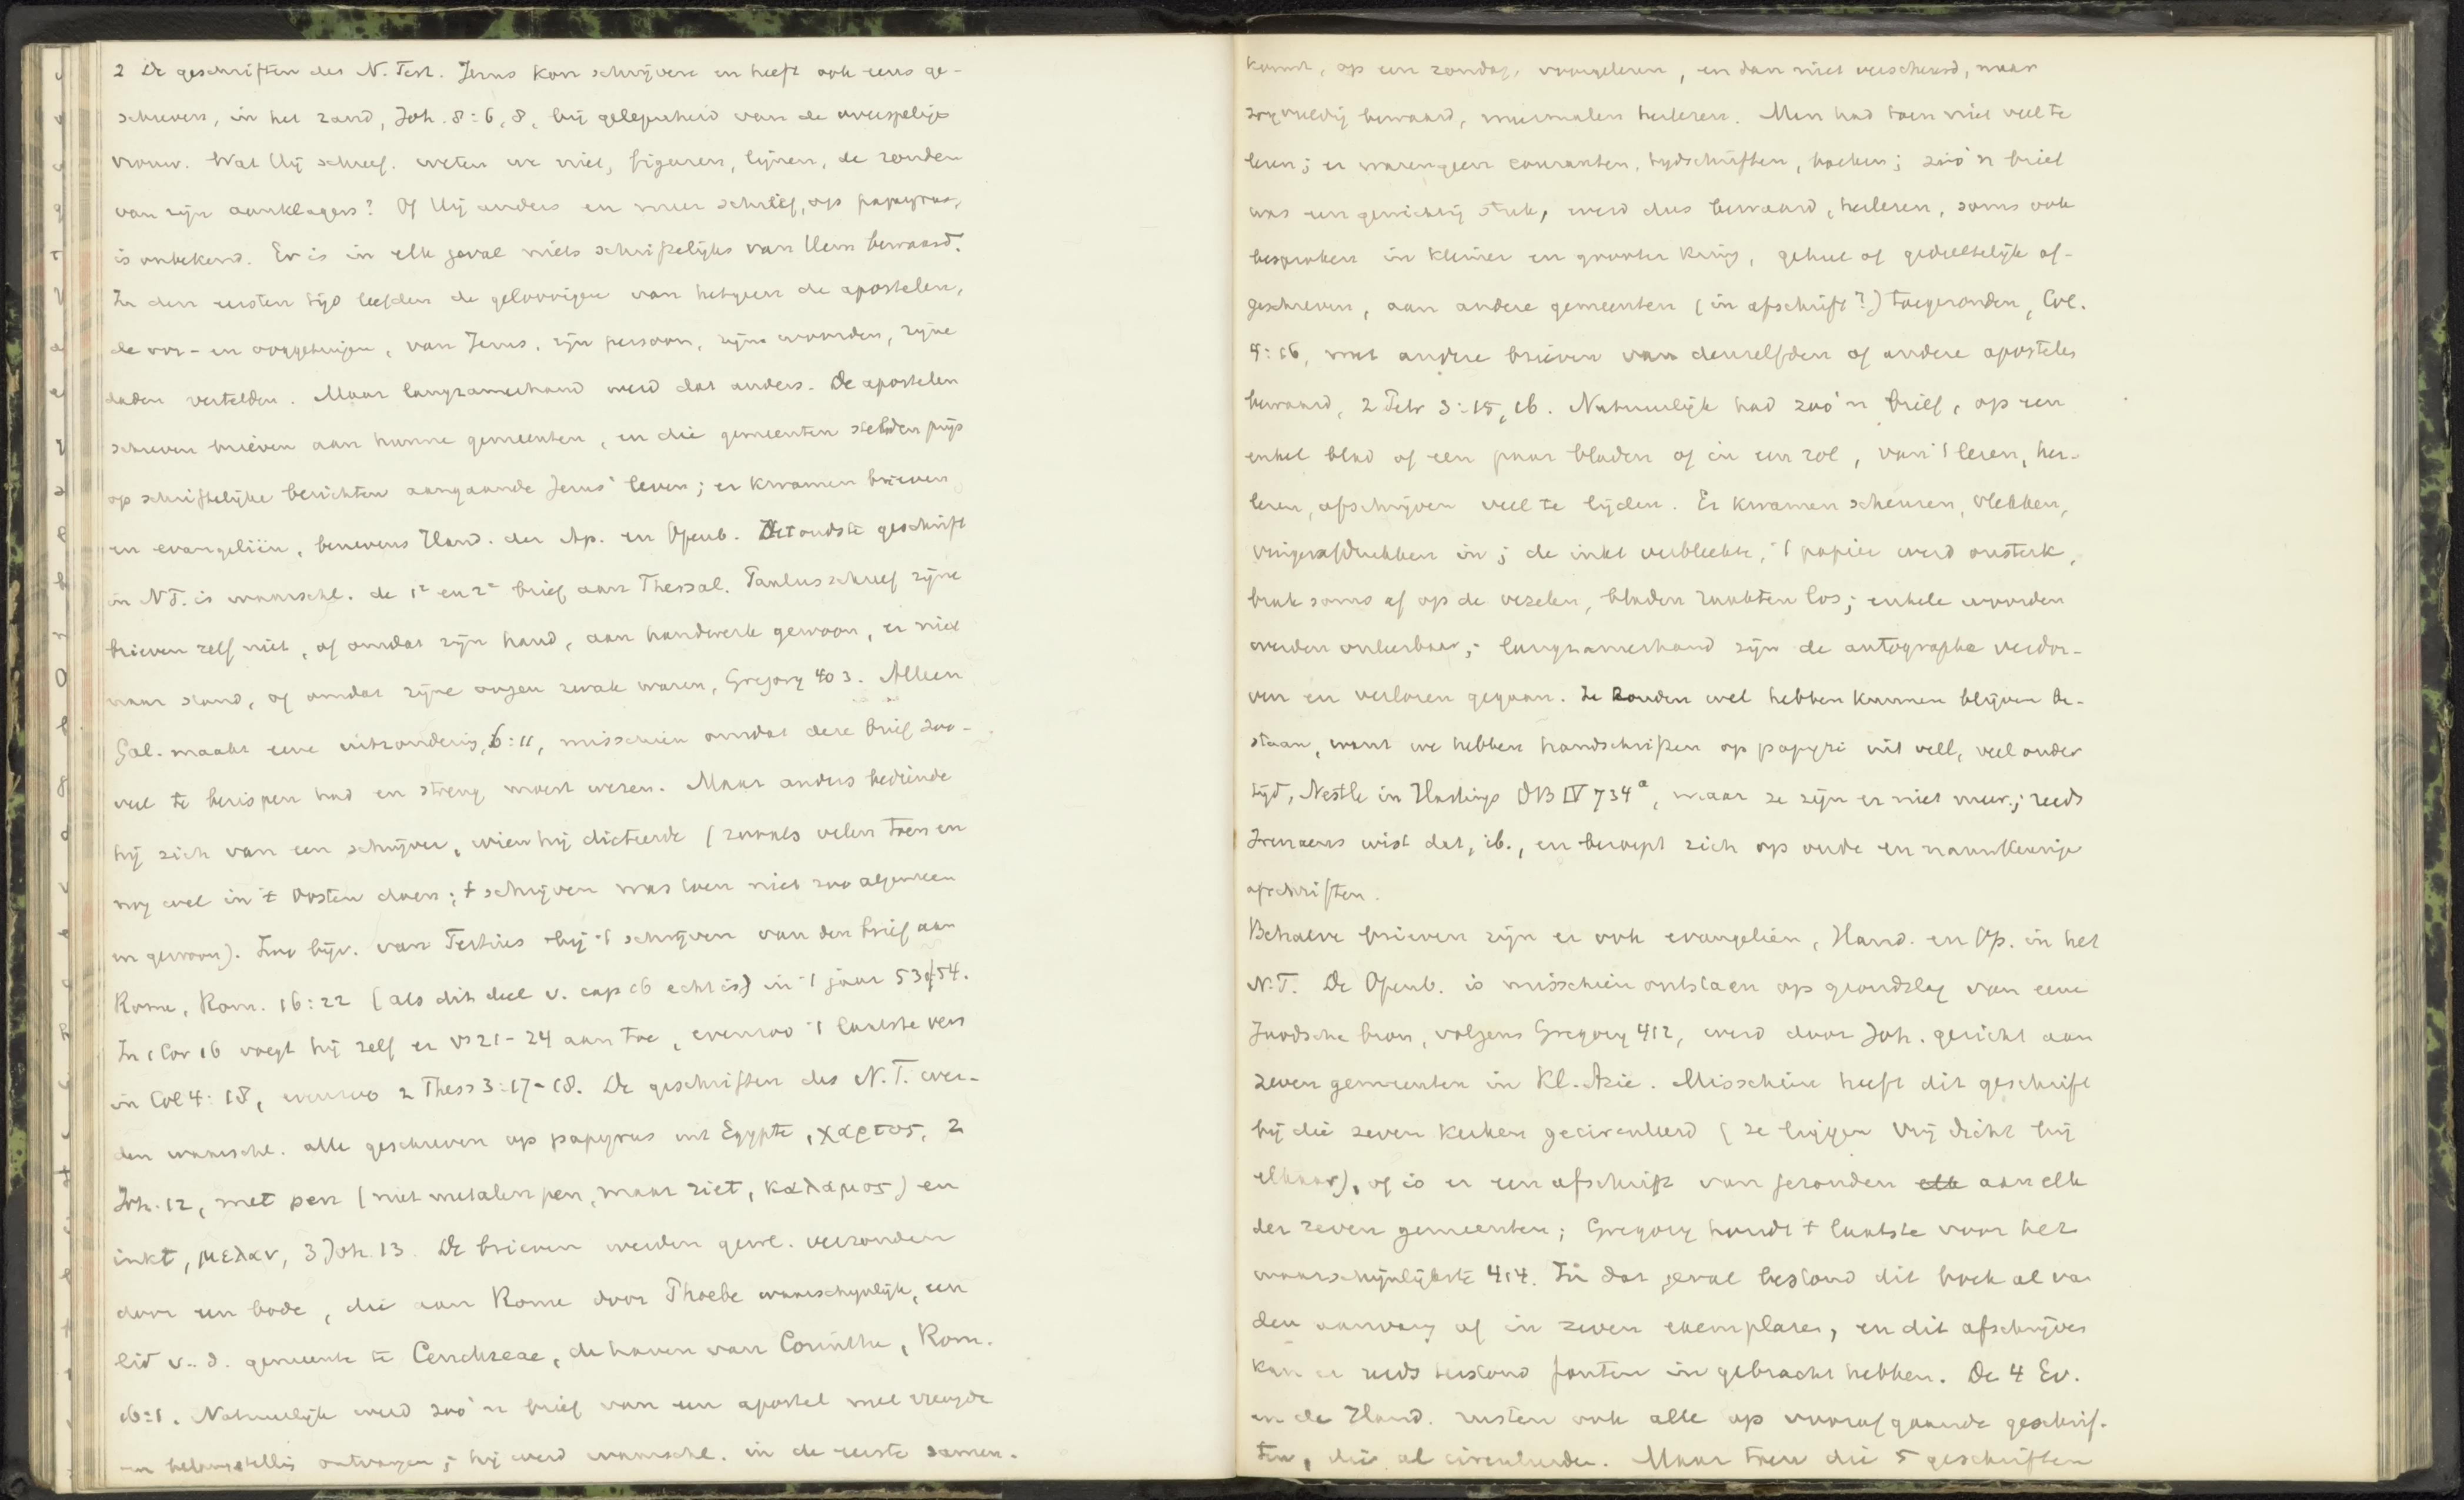 2 De geschriften des N. Test. Jezus kon schrijven en heeft ook eens ge-
schreven, in het zand, Joh. 8:6, 8, bij gelegenheid van de overspelige
vrouw. Wat Hij schreef, weten we niet, figuren, lijnen, de zonden
van zijn aanklagers? Of Hij anders en meer schreef, op papyrus,
is onbekend. Er is in elk geval niets schriftelijks van Hem bewaard.
In den eersten tijd leefden de geloovigen van hetgeen de apostelen,
de oor- en ooggetuigen, van Jezus, zijn persoon, zijne woorden, zijne
daden vertelden. Maar langzamerhand werd dat anders. De apostelen
schreven brieven aan hunne gemeenten, en die gemeenten stelden prijs
op schriftelijke berichten aangaande Jezus' leven; er kwamen brieven
en evangeliën, benevens Hand. der Ap. en Openb. Het oudste geschrift
in N.T. is waarschl. de 1e en 2e brief aan Thessal. Paulus schreef zijne
brieven zelf niet, of omdat zijn hand, aan handwerk gewoon, er niet
naar stond, of omdat zijne oogen zwak waren, Gregory 403. Alleen
Gal. maakt eene uitzondering, 6:11, misschien omdat deze brief zoo-
veel te berispen had en streng moest wezen. Maar anders bediende
hij zich van een schrijver, wien hij dicteerde (zooals velen toen en
nog wel in 't Oosten doen; 't schrijven was toen niet zoo algemeen
en gewoon). Zoo bijv. van Tertius bij 't schrijven van den brief aan
Rome, Rom. 16:22 (als dit deel v. cap 16 echt is) in 't jaar 53/54.
In 1 Cor 16 voegt hij zelf er vs 21-24 aan toe, evenzoo 't laatste vers
in Col 4:18, evenzoo 2 Thess 3:17-18. De geschriften des N.T. wer-
den waarschl. alle geschreven op papyrus uit Egypte, χαρτος, 2
Joh. 12, met pen (niet metalen pen, maar riet, καλαμος) en
inkt, μελαν, 3 Joh. 13. De brieven werden gewl. verzonden
door een bode, die aan Rome door Phoebe waarschynlijk, een
lid v. d. gemeente te Cenchreae, de haven van Corinthe, Rom.
16:1. Natuurlijk werd zoo'n brief van een apostel met vreugde
en belangstelling ontvangen; hij werd waarschl. in de eerste samen-
komst, op een zondag, voorgelezen, en dan niet verscheurd, maar
zorgvuldig bewaard, meermalen herlezen. Men had toen niet veel te
lezen; er waren geen couranten, tydschriften, boeken; zoo'n brief
was een gewichtig stuk, werd dus bewaard, herlezen, soms ook
besproken in kleiner en grooter kring, geheel of gedeeltelijk af-
geschreven, aan andere gemeenten (in afschrift?) toegezonden, Col.
4:16, met andere brieven van denzelfden of andere apostelen
bewaard, 2 Petr 3:15, 16. Natuurlijk had zoo'n brief, op een
enkel blad of een paar bladen of in een rol, van 't lezen, her-
lezen, afschrijven veel te lijden. Er kwamen scheuren, vlekken,
vingerafdrukken in; de inkt verbleekte, 't papier werd onsterk,
brak soms af op de vezelen, bladen raakten los; enkele woorden
werden onleesbaar; langzamerhand zijn de autographa verdor-
ven en verloren gegaan. Ze zouden wel hebben kunnen blijven be-
staan, want we hebben handschriften op papyri uit veel, veel ouder
tijd, Nestle in Hastings DB IV 734a, maar ze zijn er niet meer; reeds
Irenaeus wist dat, ib., en beroept zich op oude en naauwkeurige
afschriften.
Behalve brieven zijn er ook evangeliën, Hand. en Op. in het
N.T. De Openb. is misschien ontstaan op grondslag van eene
Joodsche bron, volgens Gregory 412, werd door Joh. gericht aan
zeven gemeenten in Kl. Azie. Misschien heeft dit geschrift
bij die zeven kerken gecirculeerd (ze liggen vrij dicht bij
elkaar), of is er een afschrift van gezonden elk aan elk
der zeven gemeenten; Gregory houdt 't laatste voor het
waarschijnlijkste 414. In dat geval bestond dit boek al van
den aanvang af in zeven exemplaren, en dit afschrijven
kan er reeds terstond fouten in gebracht hebben. De 4 Ev.
en de Hand. rusten ook alle op voorafgaande geschrif-
ten, die al circuleerden. Maar toen die 5 geschriften